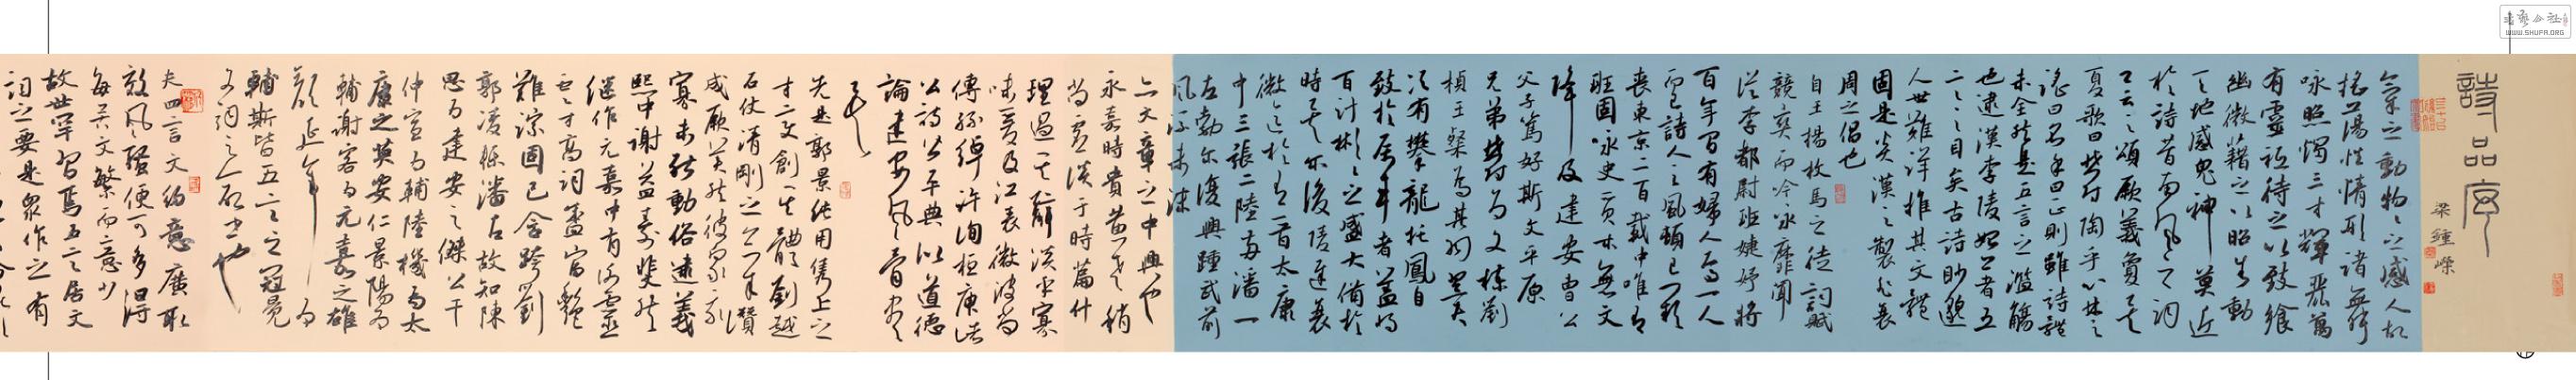 詩品序
梁 鍾嶸
氣之動物物之感人故
搖蕩性情形諸舞
詠照燭三才輝麗萬
有靈祇待之以致饗
幽微藉之以昭告動
天地感鬼神莫近
於詩昔南風之詞
卿云之頌厥義夐矣
夏歌曰鬱陶乎心楚
謠曰名余曰正則雖詩體
未全然是五言之濫觴
也逮漢李陵始著五
言之目矣古詩眇邈
人世難詳推其文體
固是炎漢之製非衰
周之倡也
自王揚枚馬之徒詞賦
競爽而吟詠靡聞
從李都尉班婕妤將
百年間有婦人焉一人
而已詩人之風頓已缺
喪東京二百載中唯有
班固詠史質木無文
降及建安曹公
父子篤好斯文平原
兄弟鬱為文棟劉
楨王粲為其羽翼
次有攀龍托鳳自
致於屬車者蓋將
百計彬彬之盛大備於
時矣爾後陵遲衰
微迄於有晉太康
中三張二陸兩潘一
左勃爾復興踵武前
王風流未沫
亦文章之中興也
永嘉時貴黃老稍
尚虛談于時篇什
理過其辭淡乎寡
味爰及江表微波尚
傳孫綽許詢桓庾諸
公詩皆平典似道德
論建安風骨盡
矣
先是郭景純用雋上之
才變創其體劉越
石仗清剛之氣贊
成厥美然彼眾我
寡未能動俗逮義
熙中謝益壽斐然
繼作元嘉中有謝靈
運才高詞盛富艷
難蹤固已含跨劉
郭凌轢潘左故知陳
思為建安之傑公幹
仲宣為輔陸機為太
康之英安仁景陽為
輔謝客為元嘉之雄
顏延年為
輔斯皆五言之冠冕
文詞之命世也
夫四言文約意廣取
效風騷便可多得
每苦文繁而意少
故世罕習焉五言居文
詞之要是眾作之有
WWW.SHUFA.ORG